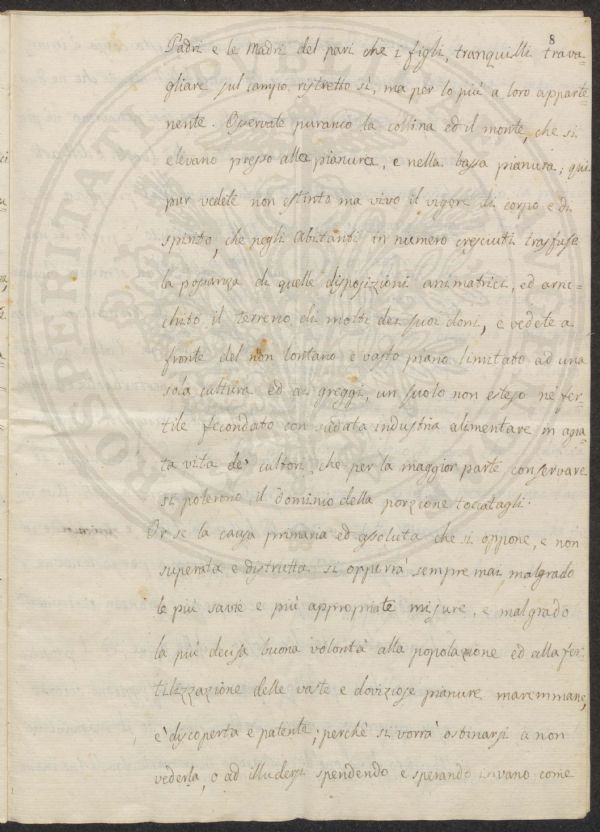 8
Padri e le Madri del pari che i figli, tranquilli trava-
gliare sul campo ristretto sì, ma per lo più a loro apparte-
nente. Osservate puranco la collina ed il monte, che si
elevano presso alla pianura, e nella bassa pianura, qui
pur vedete non estinto ma vivo il vigore di corpo e di
spirito, che negli Abitanti in numero cresciuti trasfuse
la possanza di quelle disposizioni animatrici, ed arric-
chito il terreno di molti dei suoi doni, e vedete a
fronte del non lontano e vasto piano limitato ad una
sola cultura ed ai greggi, un suolo non esteso nè fer-
tile fecondato con sudata industria alimentare
ta vita de' cultori, che per la maggior parte conservare
si poterono il dominio della porzione toccatagli.
Or se la causa primaria ed assoluta che si oppone, e non
superata e distrutta si opporrà sempre mai malgrado
le più savie e più appropriate misure, e malgrado
la più decisa buona volontà alla popolazione ed alla fer-
tilizzazione delle vaste e doviziose pianure maremmane,
è discoperta e patente; perchè si vorrà ostinarsi a non
vederla, o ad illudersi spendendo e sperando invano come
PROSPERITATI PUBLICAE